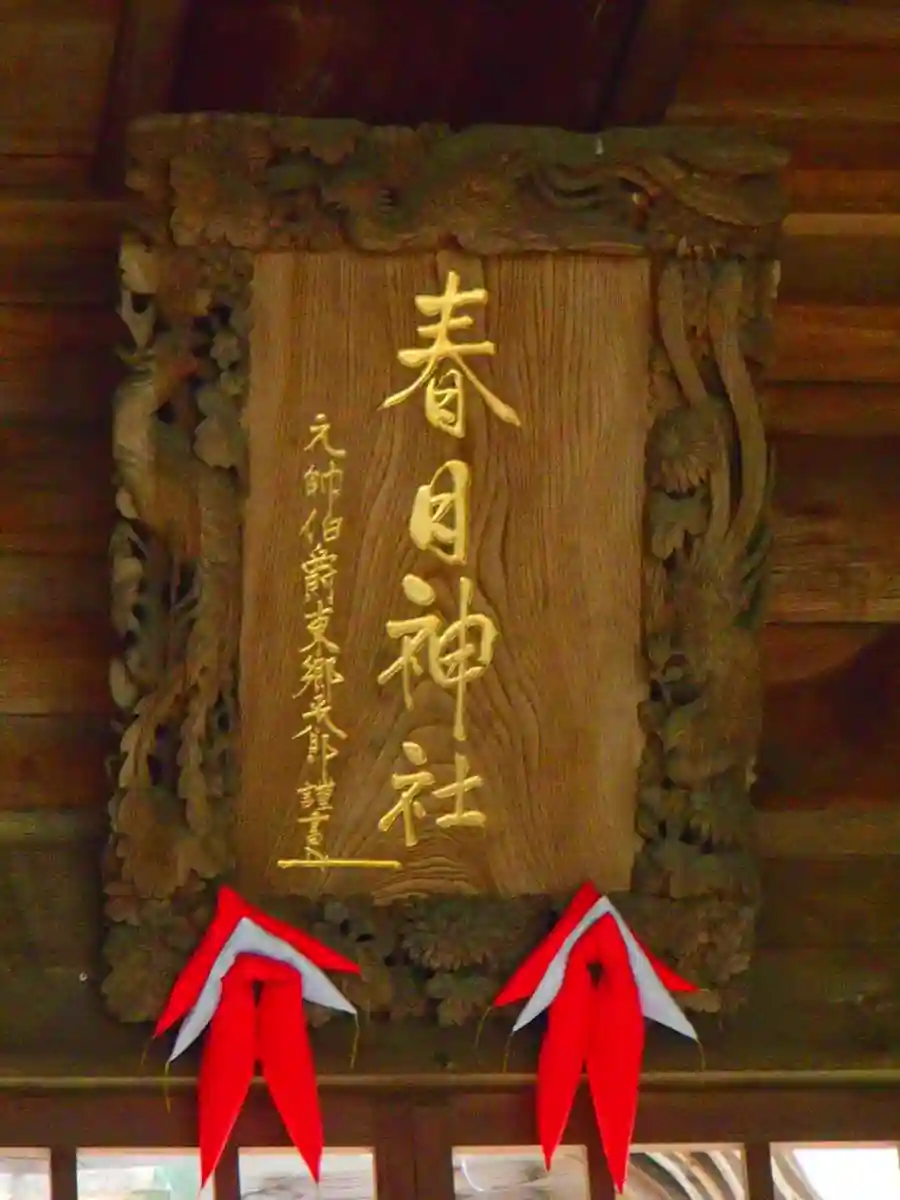 春日神社
元帥伯爵東郷平八郎謹書